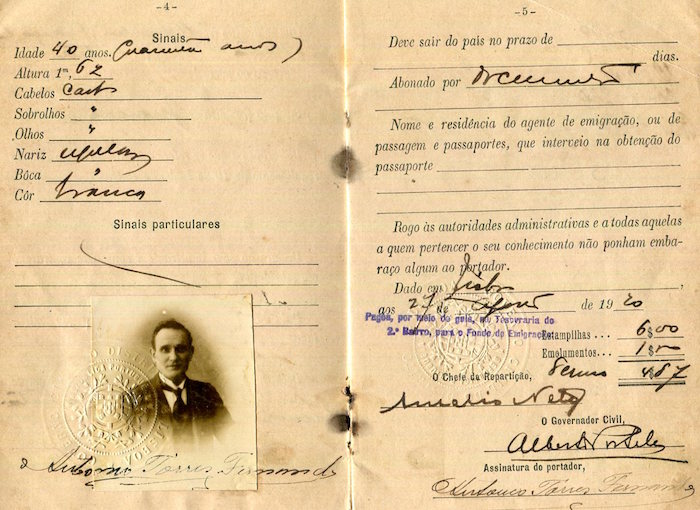 -4-
Sinais
Idade 40 anos. (quarenta anos)
Altura 1m,62
Cabelos Cast
Sobrolhos "
Olhos "
Nariz regular
Bôca "
Côr branca
Sinais particulares
Antonio Torres Fernand
-5-
Deve sair do país no prazo de
dias.
Abonado por
Nome e residência do agente de emigração, ou de
passagem e passaportes, que interveio na obtenção do
passaporte
Rogo às autoridades administrativas e a todas aquelas
a quem pertencer o seu conhecimento não ponham emba-
raço algum ao portador.
Dado em Lisboa
aos 27 de de 1920
Pagou, por meio de guia, na Tesouraria do
2.º Bairro, para o Fundo de Emigração.
Estampilhas.. 6$00
Emolumentos... 1$00
O Chefe da Repartição,
Neto
O Governador Civil,
Alberto
Assinatura do portador,
Antonio Torres Fernand